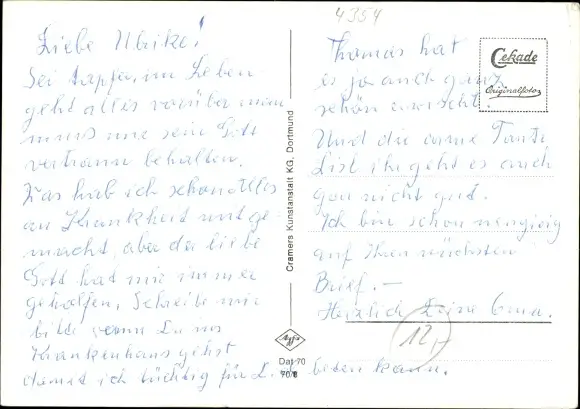 4354
Liebe Ulrike!
Sei tapfer, im Leben
geht alles vorüber man
muss nur sein Gott
vertraun behalten.
Was hab ich schon alles
an Krankheit mitge-
macht, aber der liebe
Gott hat mir immer
geholfen, Schreibe mir
bitte wenn Du ins
Krankenhaus gehst
damit ich tüchtig für Dich beten kann.
Thomas hat
es ja auch ganz
schön erwischt.
Und die arme Tante
Lisl ihr geht es auch
gar nicht gut.
Ich bin schon neugierig
auf Ihren nächsten
Brief. —
Herzlich Deine Oma.
12,-
Cekade
Originalfoto
Cramers Kunstanstalt KG, Dortmund
Agfa
Dat 70